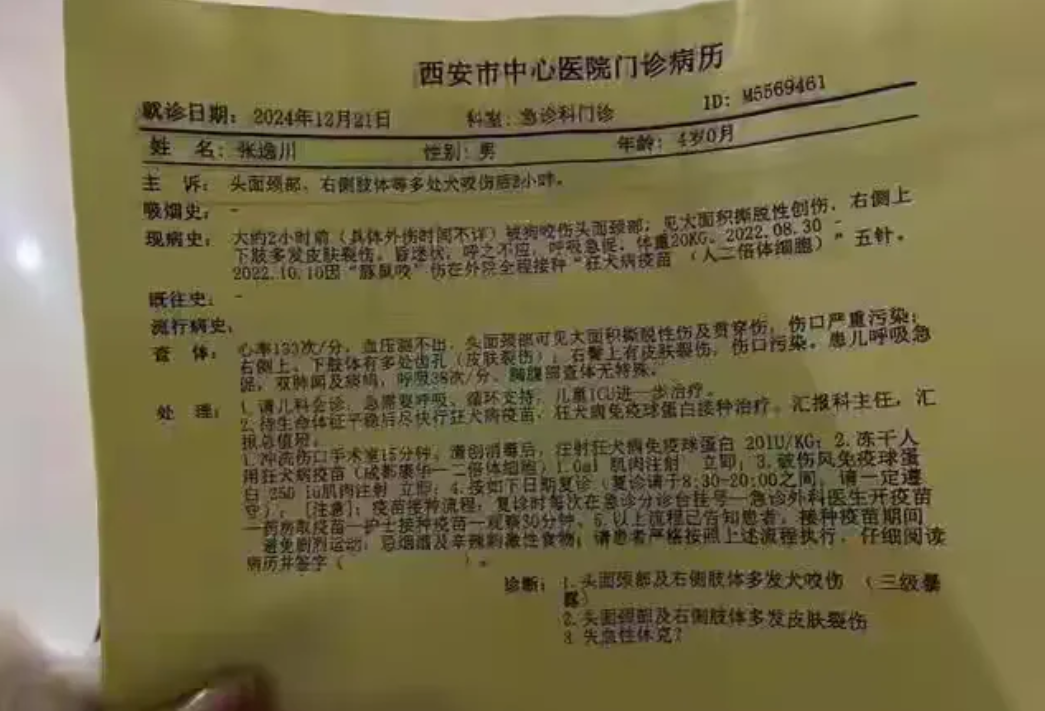 西安市中心医院门诊病历
就诊日期: 2024年12月21日 科室: 急诊科门诊 ID: M5569461
姓 名: 张逸川 性别: 男 年龄: 4岁0月
主 诉: 头面颈部、右侧肢体等多处犬咬伤后2小时。
吸烟史: -
现病史: 大约2小时前（具体外伤时间不详）被狗咬伤头面颈部，见大面积撕脱性创伤，右侧上
下肢多发皮肤裂伤，昏迷状，呼之不应，呼吸急促，体重20KG。2022.08.30 -
2022.10.10因“豚鼠咬”伤在外院全程接种“狂犬病疫苗（人二倍体细胞）”五针。
既往史: -
流行病史:
查 体: 心率133次/分，血压测不出，头面颈部可见大面积撕脱性伤及贯穿伤，伤口严重污染；
右侧上、下肢体有多处齿孔（皮肤裂伤），右臀上有皮肤裂伤，伤口污染。患儿呼吸急
促，双肺闻及痰鸣，呼吸38次/分，胸腹部查体无特殊。
处 理: 1.请儿科会诊，急需要呼吸、循环支持，儿童ICU进一步治疗。
2.待生命体征平稳后尽快行狂犬病疫苗、狂犬病免疫球蛋白接种治疗。汇报科主任，汇
报总值班。
1.冲洗伤口手术室15分钟，清创消毒后，注射狂犬病免疫球蛋白 20IU/KG；2.冻干人
用狂犬病疫苗（成都康华—二倍体细胞）1.0ml 肌肉注射 立即；3.破伤风免疫球蛋
白 250 iu肌肉注射 立即；4.按如下日期复诊（复诊请于8:30-20:00之间，请一定遵
守）；[注意]：疫苗接种流程：复诊时每次在急诊分诊台挂号—急诊外科医生开疫苗
—药房取疫苗—护士接种疫苗—观察30分钟。5.以上流程已告知患者，接种疫苗期间
避免剧烈运动，忌烟酒及辛辣刺激性食物；请患者严格按照上述流程执行，仔细阅读
病历并签字（ ）。
诊断: 1.头面颈部及右侧肢体多发犬咬伤 （三级暴
露）
2.头面颈部及右侧肢体多发皮肤裂伤
3.失血性休克？